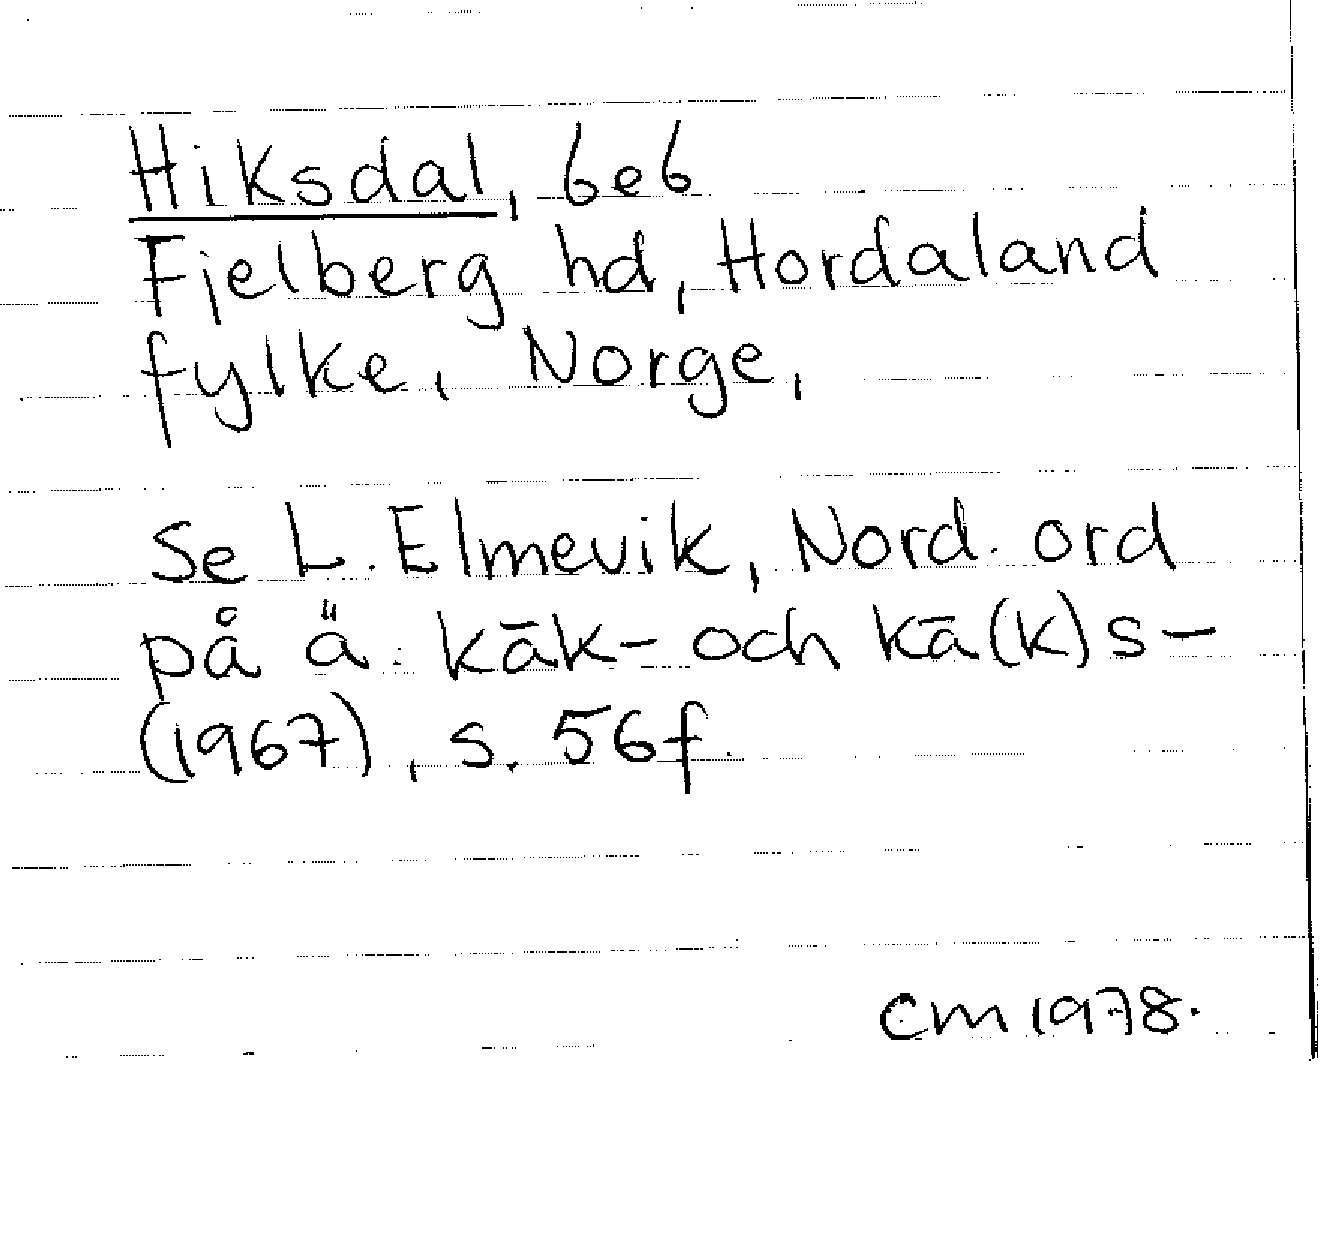 Hiksdal, beb
Fjelberg hd, Hordaland
fylke, Norge,
Se L. Elmevik, Nord. ord
på ä. kāk- och kā(k)s-
(1967), s. 56f.
CM 1978.